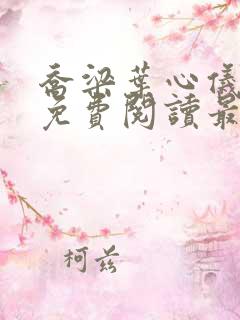 喬梁葉心儀
免費閱讀最
柯兹